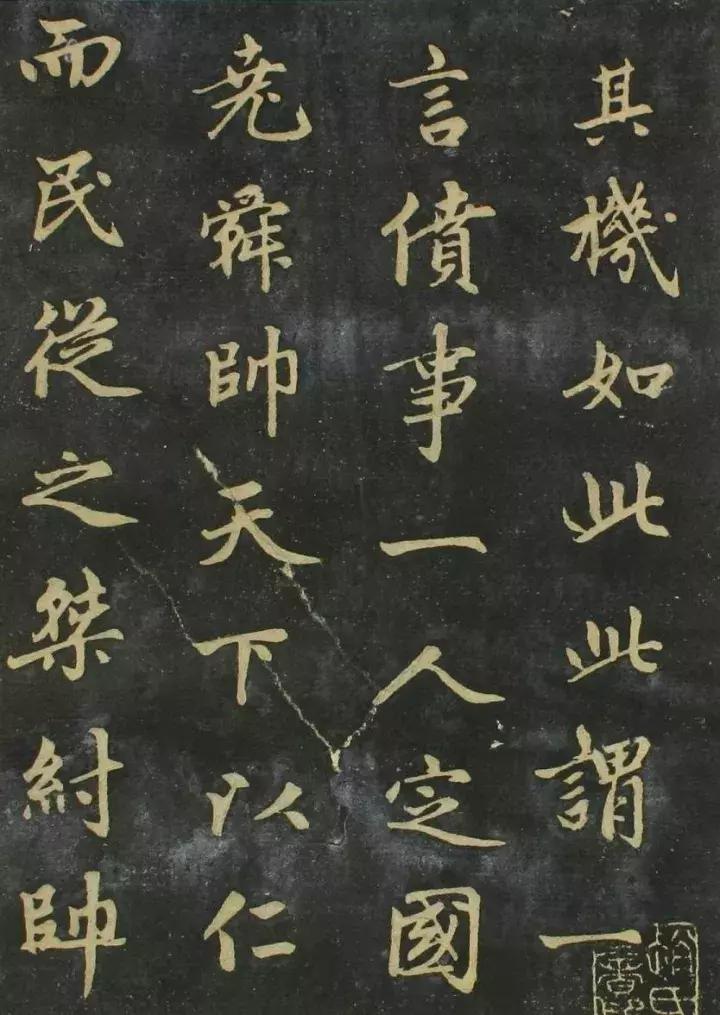 其機如此此謂一
言僨事一人定國
堯舜帥天下以仁
而民從之桀紂帥